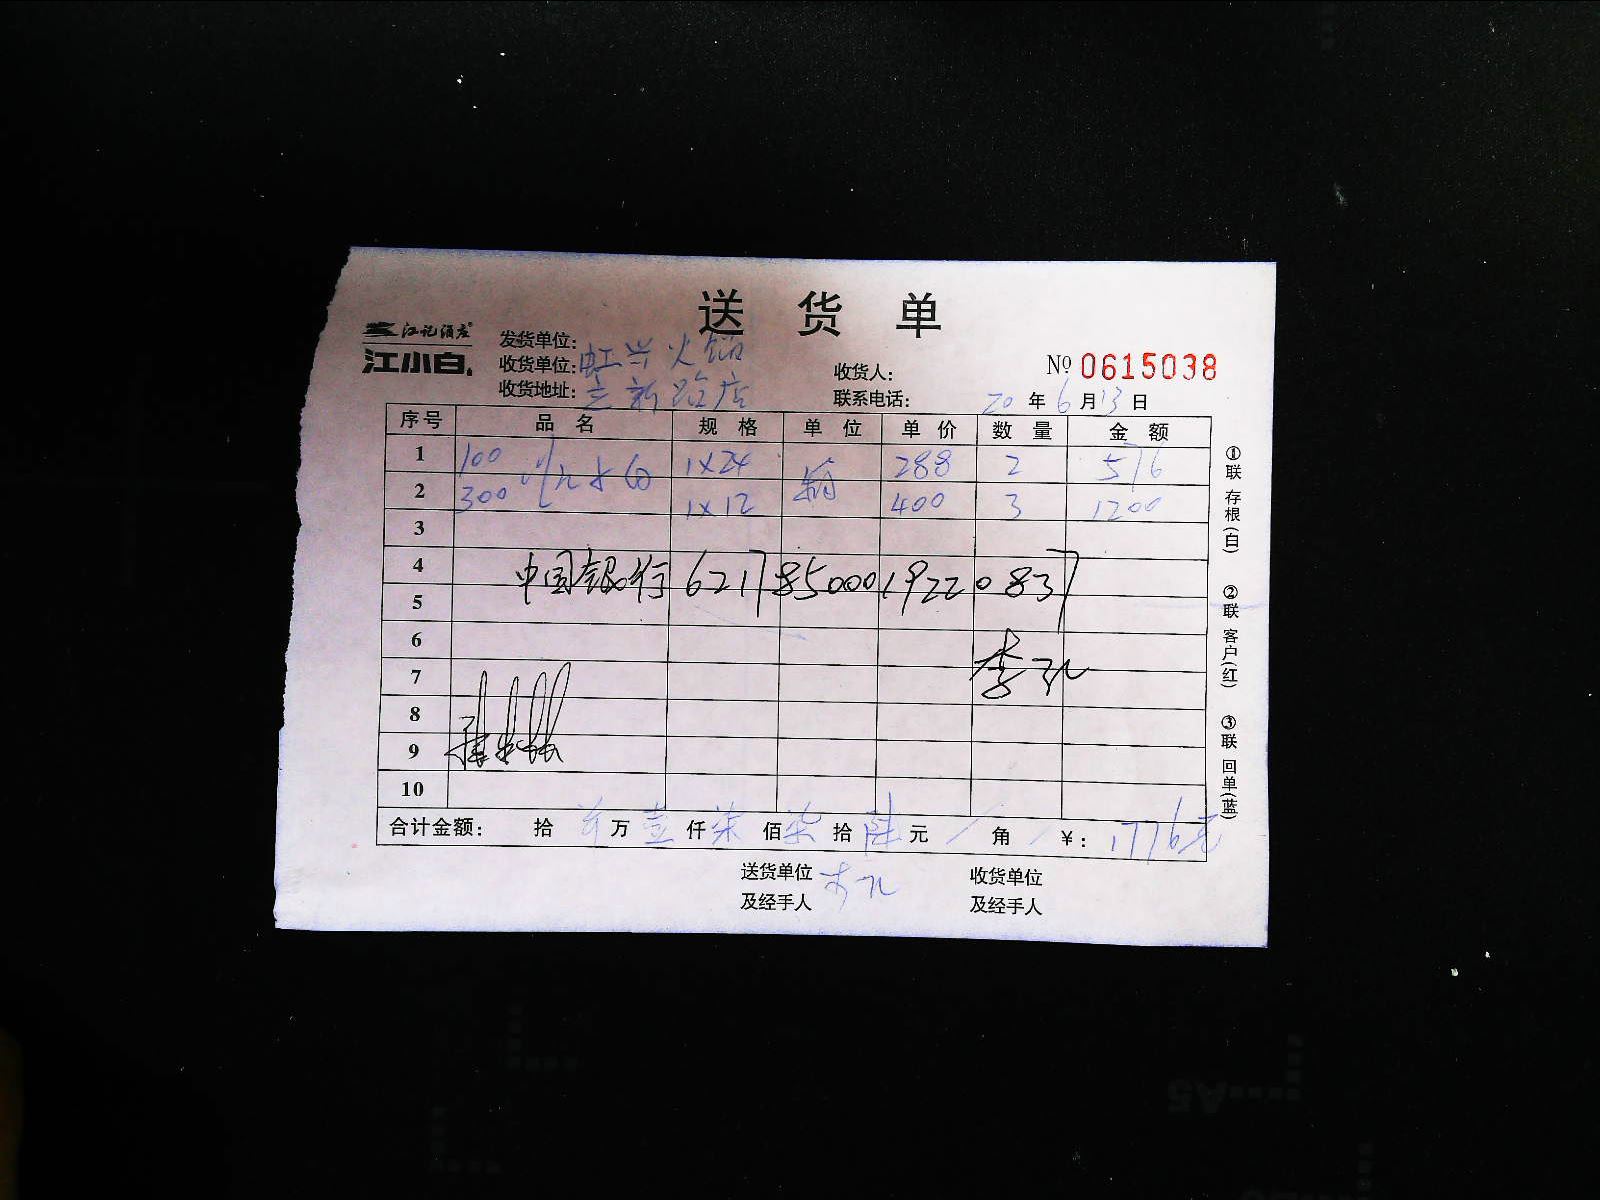 送货单
江记酒庄
江小白
发货单位:
收货单位: 虹兴火锅
收货地址: 立新路店
收货人:
联系电话:
№ 0615038
20 年 6 月 13 日
序号 品名 规格 单位 单价 数量 金额
1 100 江小白 1×24 箱 288 2 576
2 300 1×12 400 3 1200
3
4 中国银行 6217850001922083 7
5
6
7 李孔
8
9
10
合计金额: 拾 万 壹 仟 柒 佰 柒 拾 陆 元 / 角 / ¥: 1776元
送货单位 李孔
及经手人
收货单位
及经手人
①联 存根(白)
②联 客户(红)
③联 回单(蓝)